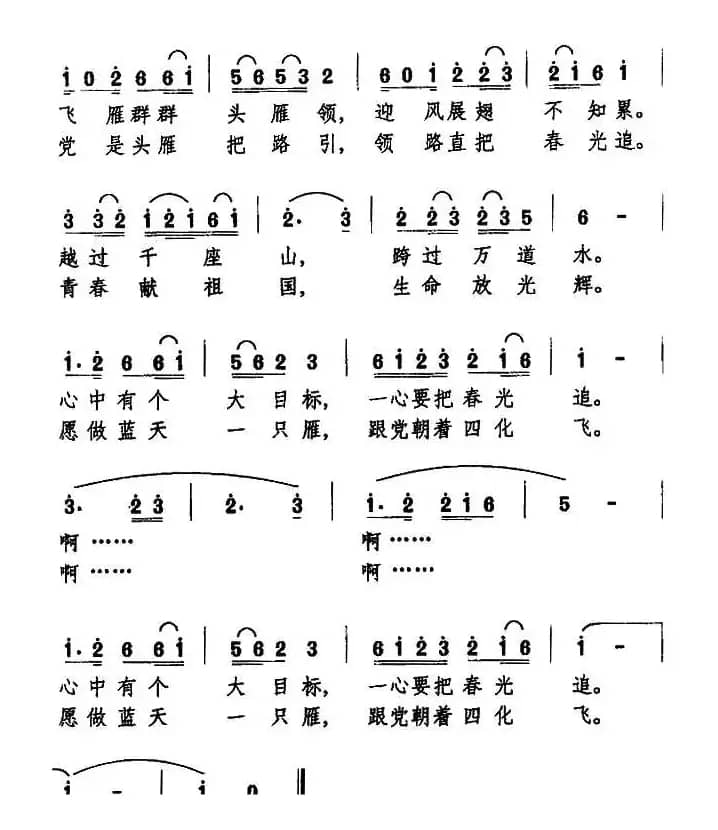 i 0 2 6 6 i | 5 6 5 3 2 | 6 0 i 2 2 3 | 2 i 6 i
飞雁群群 头雁领, 迎风展翅 不知累。
党是头雁 把路引, 领路直把 春光追。
3 3 2 i 2 i 6 i | 2· 3 | 2 2 3 2 3 5 | 6 -
越过千座山, 跨过万道水。
青春献祖国, 生命放光辉。
i· 2 6 6 i | 5 6 2 3 | 6 i 2 3 2 i 6 | i -
心中有个 大目标, 一心要把春光 追。
愿做蓝天 一只雁, 跟党朝着四化 飞。
3· 2 3 | 2· 3 | i· 2 2 i 6 | 5 -
啊…… 啊……
啊…… 啊……
i· 2 6 6 i | 5 6 2 3 | 6 i 2 3 2 i 6 | i -
心中有个 大目标, 一心要把春光 追。
愿做蓝天 一只雁, 跟党朝着四化 飞。
i - | i 0